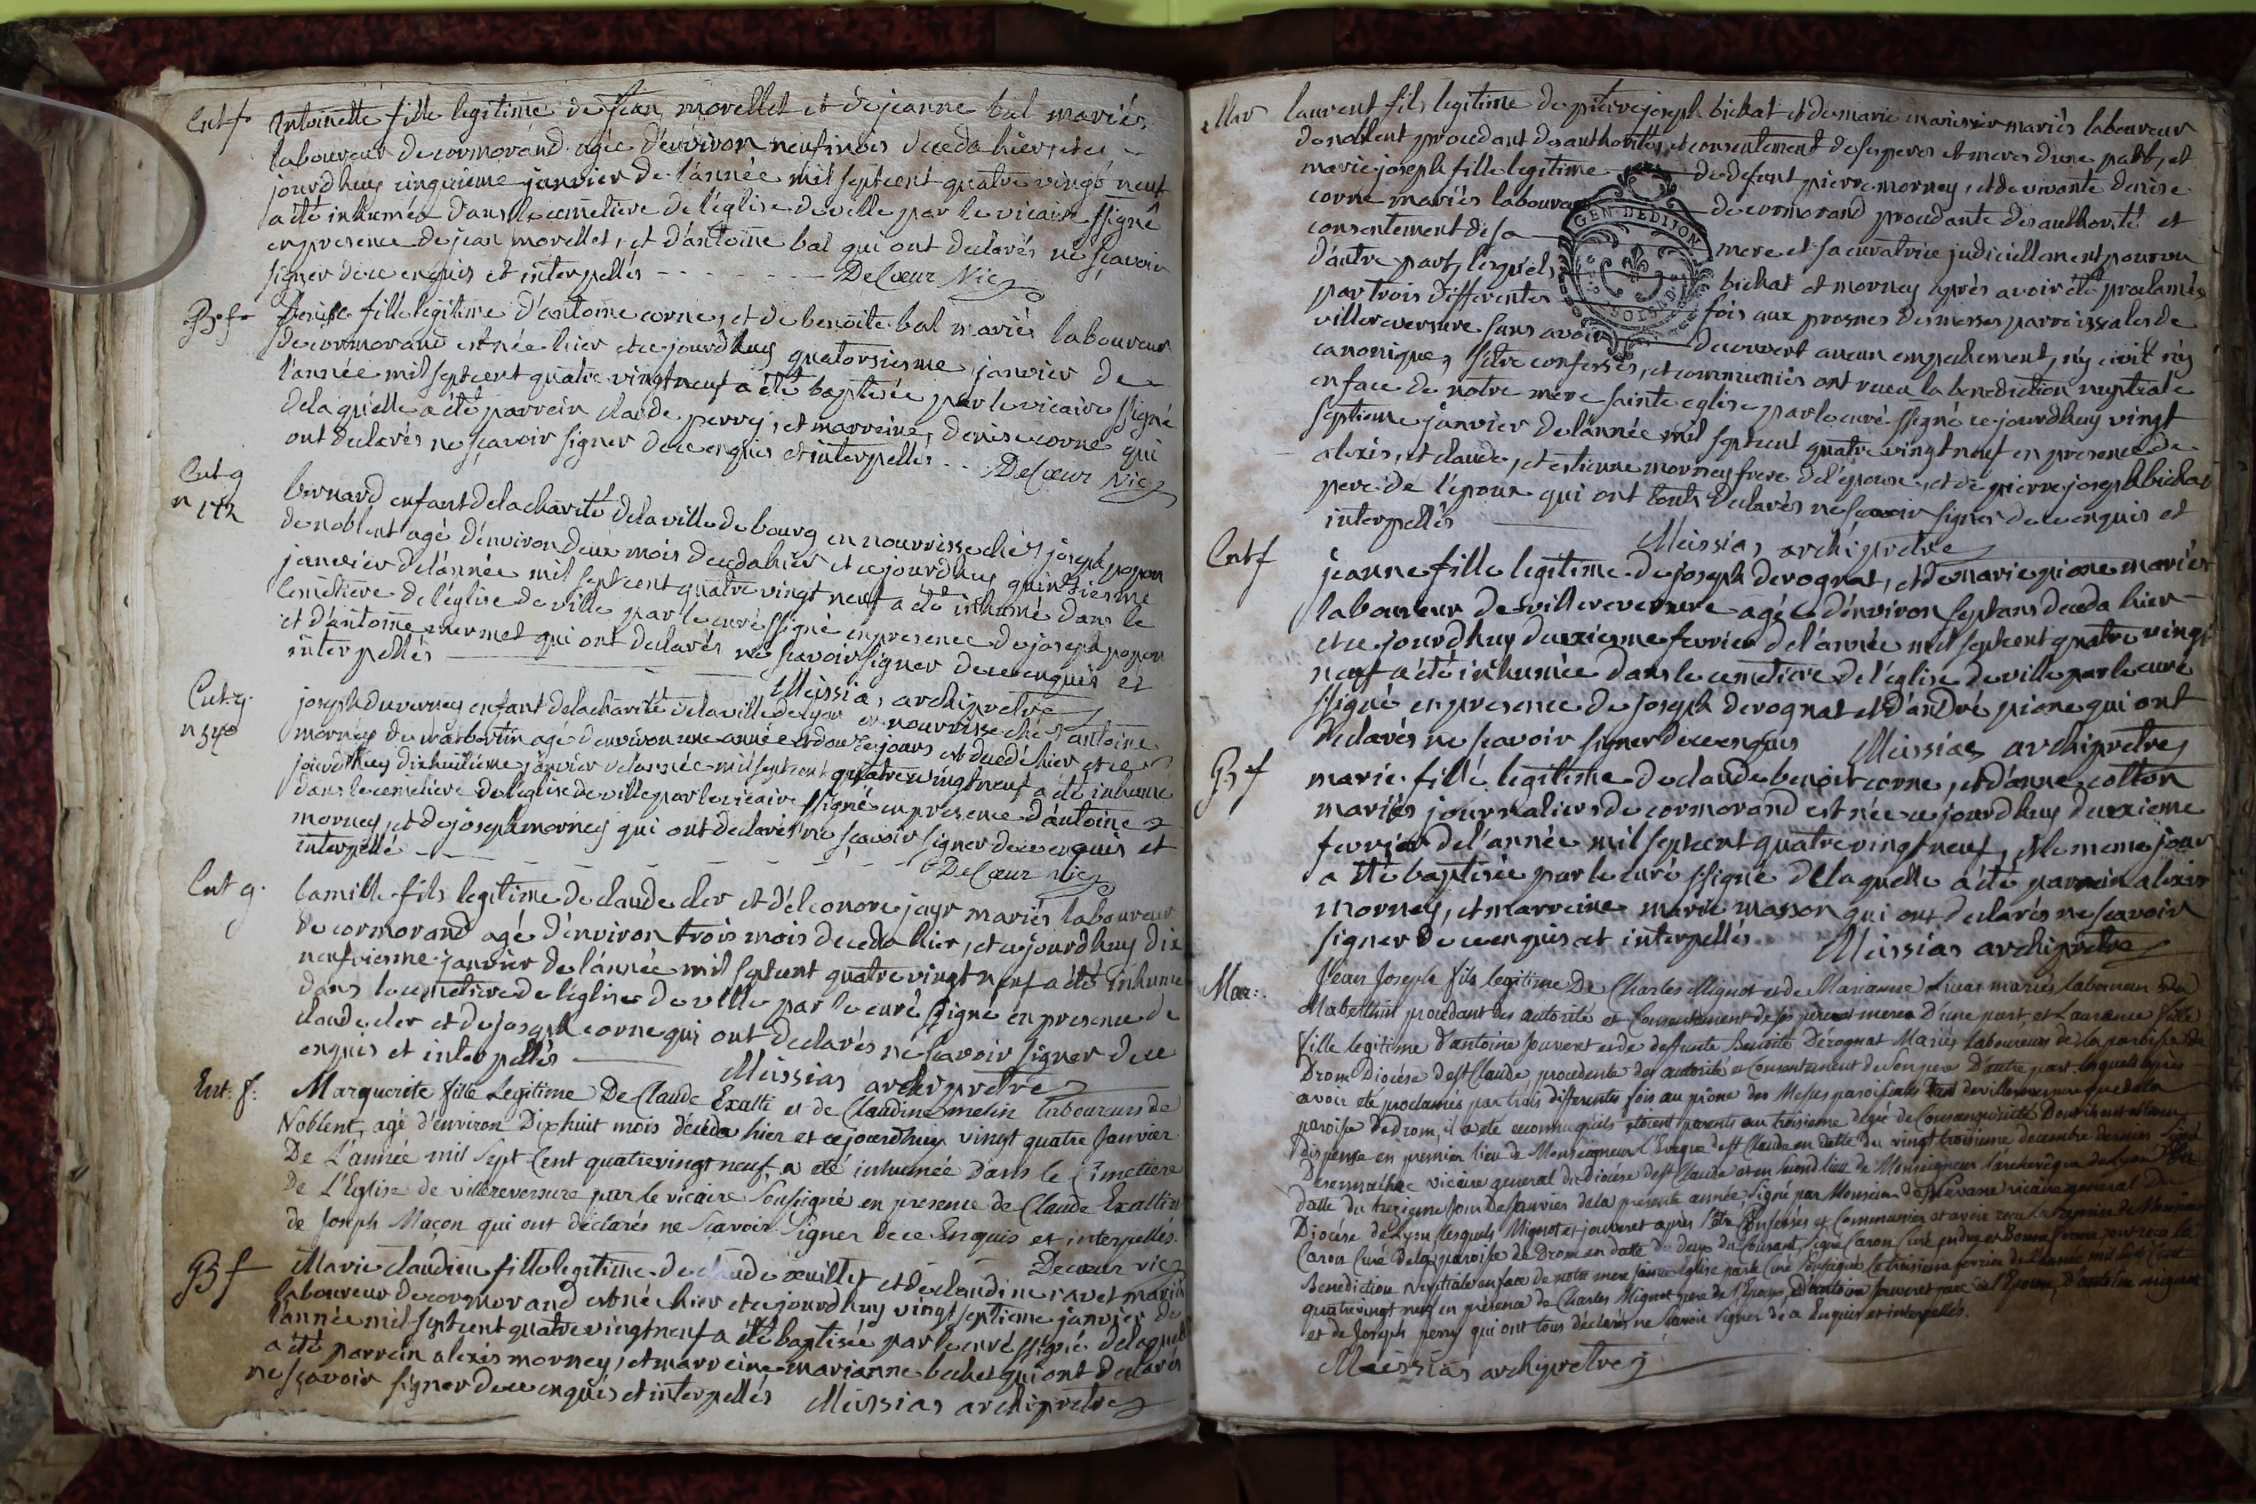 Ent f antoinette fille legitime de jean morellet et de jeanne bal mariés
laboureur de cormorand agée d'environ neuf mois decedа hier, et ce
jourd'huy cinquieme janvier de l'année mil sept cent quatre vingt neuf
a été inhumée dans le cemetiere de l'église de ville par le vicaire ssigné
en presence de jean morellet, et d'antoine bal qui ont declarés ne sçavoir
signer de ce enquis et interpellés - - - DeCœur Vic
B. f. Denise fille legitime d'antoine corne, et de benoite bal mariés laboureur
de cormorand est née hier et ce jourd'huy quatorsiesme janvier de
l'année mil sept cent quatre vingt neuf a été baptisée par le vicaire ssigné
de laquelle a été parrein claude perrey, et marreine, denise corne qui
ont declarés ne sçavoir signer de ce enquis et interpellés - - DeCœur Vic
Ent g bernard enfant de la charité de la ville de bourg en nourrisse chés joseph popon
n 172 de noblent agé d'environ deux mois deceda hier et ce jourd'huy quinsiesme
janvier de l'année mil sept cent quatre vingt neuf a été inhumé dans le
cemetiere de l'église de ville par le curé ssigné en presence de joseph popon
et d'antoine mermet qui ont declarés ne sçavoir signer de ce enquis et
interpellés Messias archipretre
Ent. g. joseph duverney enfant de la charité de la ville de lyon en nourrisse chés antoine
n 540 morney de agé d'environ une année et douze jours est decedé hier et ce
jourd'huy dixhuitieme janvier de l'année mil sept cent quatre vingt neuf a été inhumé
dans le cemetiere de l'église de ville par le vicaire ssigné en presence d'antoine
morney, et de joseph morney qui ont declarés ne sçavoir signer de ce enquis et
interpellé - - - DeCœur Vic
Ent g. Camille fils legitime de claude cler et d'éleonore jayr mariés laboureur
de cormorand agé d'environ trois mois deceda hier, et ce jourd'huy dix
neufviesme janvier de l'année mil sept cent quatre vingt neuf a été inhumé
dans le cemetiere de l'église de ville par le curé ssigné en presence de
claude cler et de joseph corne qui ont declarés ne sçavoir signer de ce
enquis et interpellés Messias archipretre
Ent: f: Marguerite fille Legitime De Claude Exalti et de Claudine melin Laboureurs de
Noblent, agé d'environ Dixhuit mois décéda hier et ce jourdhuy vingt quatre Janvier
De L'année mil Sept Cent quatrevingt neuf, a été inhumée Dans le Cimetiere
De L'Eglise de villereversure par le vicaire Soussigné en presence de Claude Exalti
de Joseph Maçon qui ont déclarés ne Sçavoir Signer De ce Enquis et interpellés.
Decœur vic
B f Marie claudien fille legitime de claude œuillet et de claudine ravet mariés
laboureur de cormorand est née hier et ce jourd'huy vingt septieme janvier de
l'année mil sept cent quatre vingt neuf a été baptisée par le curé ssigné de laquelle
a été parrein alexis morney, et marreine marianne bechet qui ont declarés
ne sçavoir signer de ce enquis et interpellés Messias archipretre
Mar laurent fils legitime de pierre joseph bichat et de marie mariés laboureur
de noblent procedant des authorités et consentement de ses peres et meres d'une part, et
marie joseph fille legitime de defunt pierre morney, et de vivante denise
corne mariés laboureur de cormorand procedante des authorité et
consentement de sa mere et sa curatrice judiciellement pourvu
d'autre part, lesquels bichat et morney après avoir été proclamés
par trois differentes fois aux prosnes des messes parroissiales de
villereversure sans avoir decouvert aucun empechement, ny civil ny
canonique, s'être confessés, et communiés ont reçu la benediction nuptiale
en face de notre mere sainte eglise par le curé ssigné ce jourd'huy vingt
septieme janvier de l'année mil sept cent quatre vingt neuf en presence de
alexis, et claude, et estienne morney frere de l'épouse, et de pierre joseph bichat
pere de l'époux qui ont touts declarés ne sçavoir signer de ce enquis et
interpellés Messias archipretre
Ent f jeanne fille legitime de joseph derognat, et de marie pione mariés
laboureur de villereversure agée d'environ sept ans deceda hier
et ce jourd'huy deuxiesme fevrier de l'année mil sept cent quatre vingt
neuf a été inhumée dans le cemetiere de l'église de ville par le curé
ssigné en presence de joseph derognat et d'andré pione qui ont
declarés ne sçavoir signer de ce enquis Messias archipretre
B f marie fille legitime de claude benoit corne, et d'anne cotton
mariés journaliers de cormorand est née ce jourd'huy deuxieme
fevrier de l'année mil sept cent quatre vingt neuf, et le meme jour
a été baptisée par le curé ssigné de laquelle a été parrein alexis
morney, et marreine marie masson qui ont declarés ne sçavoir
signer de ce enquis et interpellés. Messias archipretre
Mar:. Jean Joseph fils legitime De Charles Mignot et de Marianne mariés Laboureur de
procedant des autorité et Consentement de ses peres et meres D'une part, et Laurence fille
fille legitime d'antoine Jouvent et de deffunte Benoite Dérognat Mariés Laboureurs de la paroisse de
Drom Diocése de st Claude procedente des autorité et Consentement de Son pere D'autre part lesquels après
avoir été proclamés par trois differentes fois au prône des Messes paroissiales de villereversure que de la
paroisse de Drom, il a été reconnu quils etoient parents au troisieme degré de Consanguinité Dont ils ont
Dispense en premier lieu de Monseigneur L'Eveque de st Claude en datte du vingt troisieme decembre dernier Signé
vicaire general du Diocése de st Claude et en Second lieu de Monseigneur l'archevêque de Lyon
datte du treizieme Jour De Janvier de la présente année Signé par Monsieur vicaire general du
Diocése de Lyon lesquels Mignot et jouvent après S'être Confessés et Communiés et avoir la remise de Monsieur
Caron Curé de la paroisse de Drom en datte du deux du Courant, Signé Caron Curé
Bénédiction Nuptiale en face de notre mere Sainte Eglise par le Curé Soussigné Le troisieme fevrier de L'année mil Sept Cent
quatrevingt neuf en présence de Charles Mignot pere de l'Epoux, D'antoine Jouvent pere de l'Epouse, D'antoine mignot
et de Joseph perry qui ont tous déclarés ne Sçavoir Signer de ce Enquis et interpellés.
Messias archipretre
GEN. DE DIJON